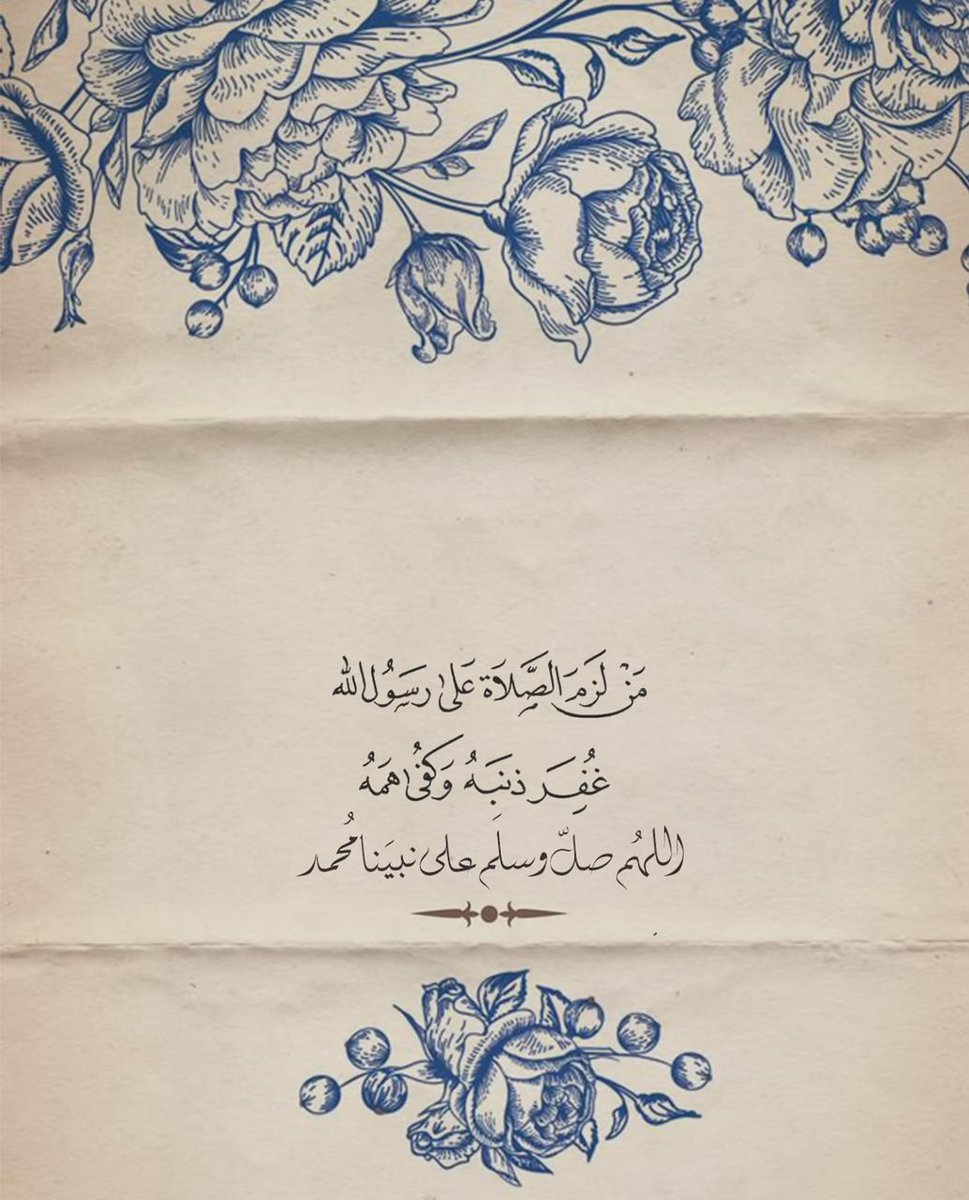 مَنْ لَزِمَ الصَّلَاةَ عَلَى رَسُولِ الله
غُفِرَ ذَنبَهُ وَكُفى هَمَهُ
اللهُم صلِّ وسلِم على نبيَنا مُحمد